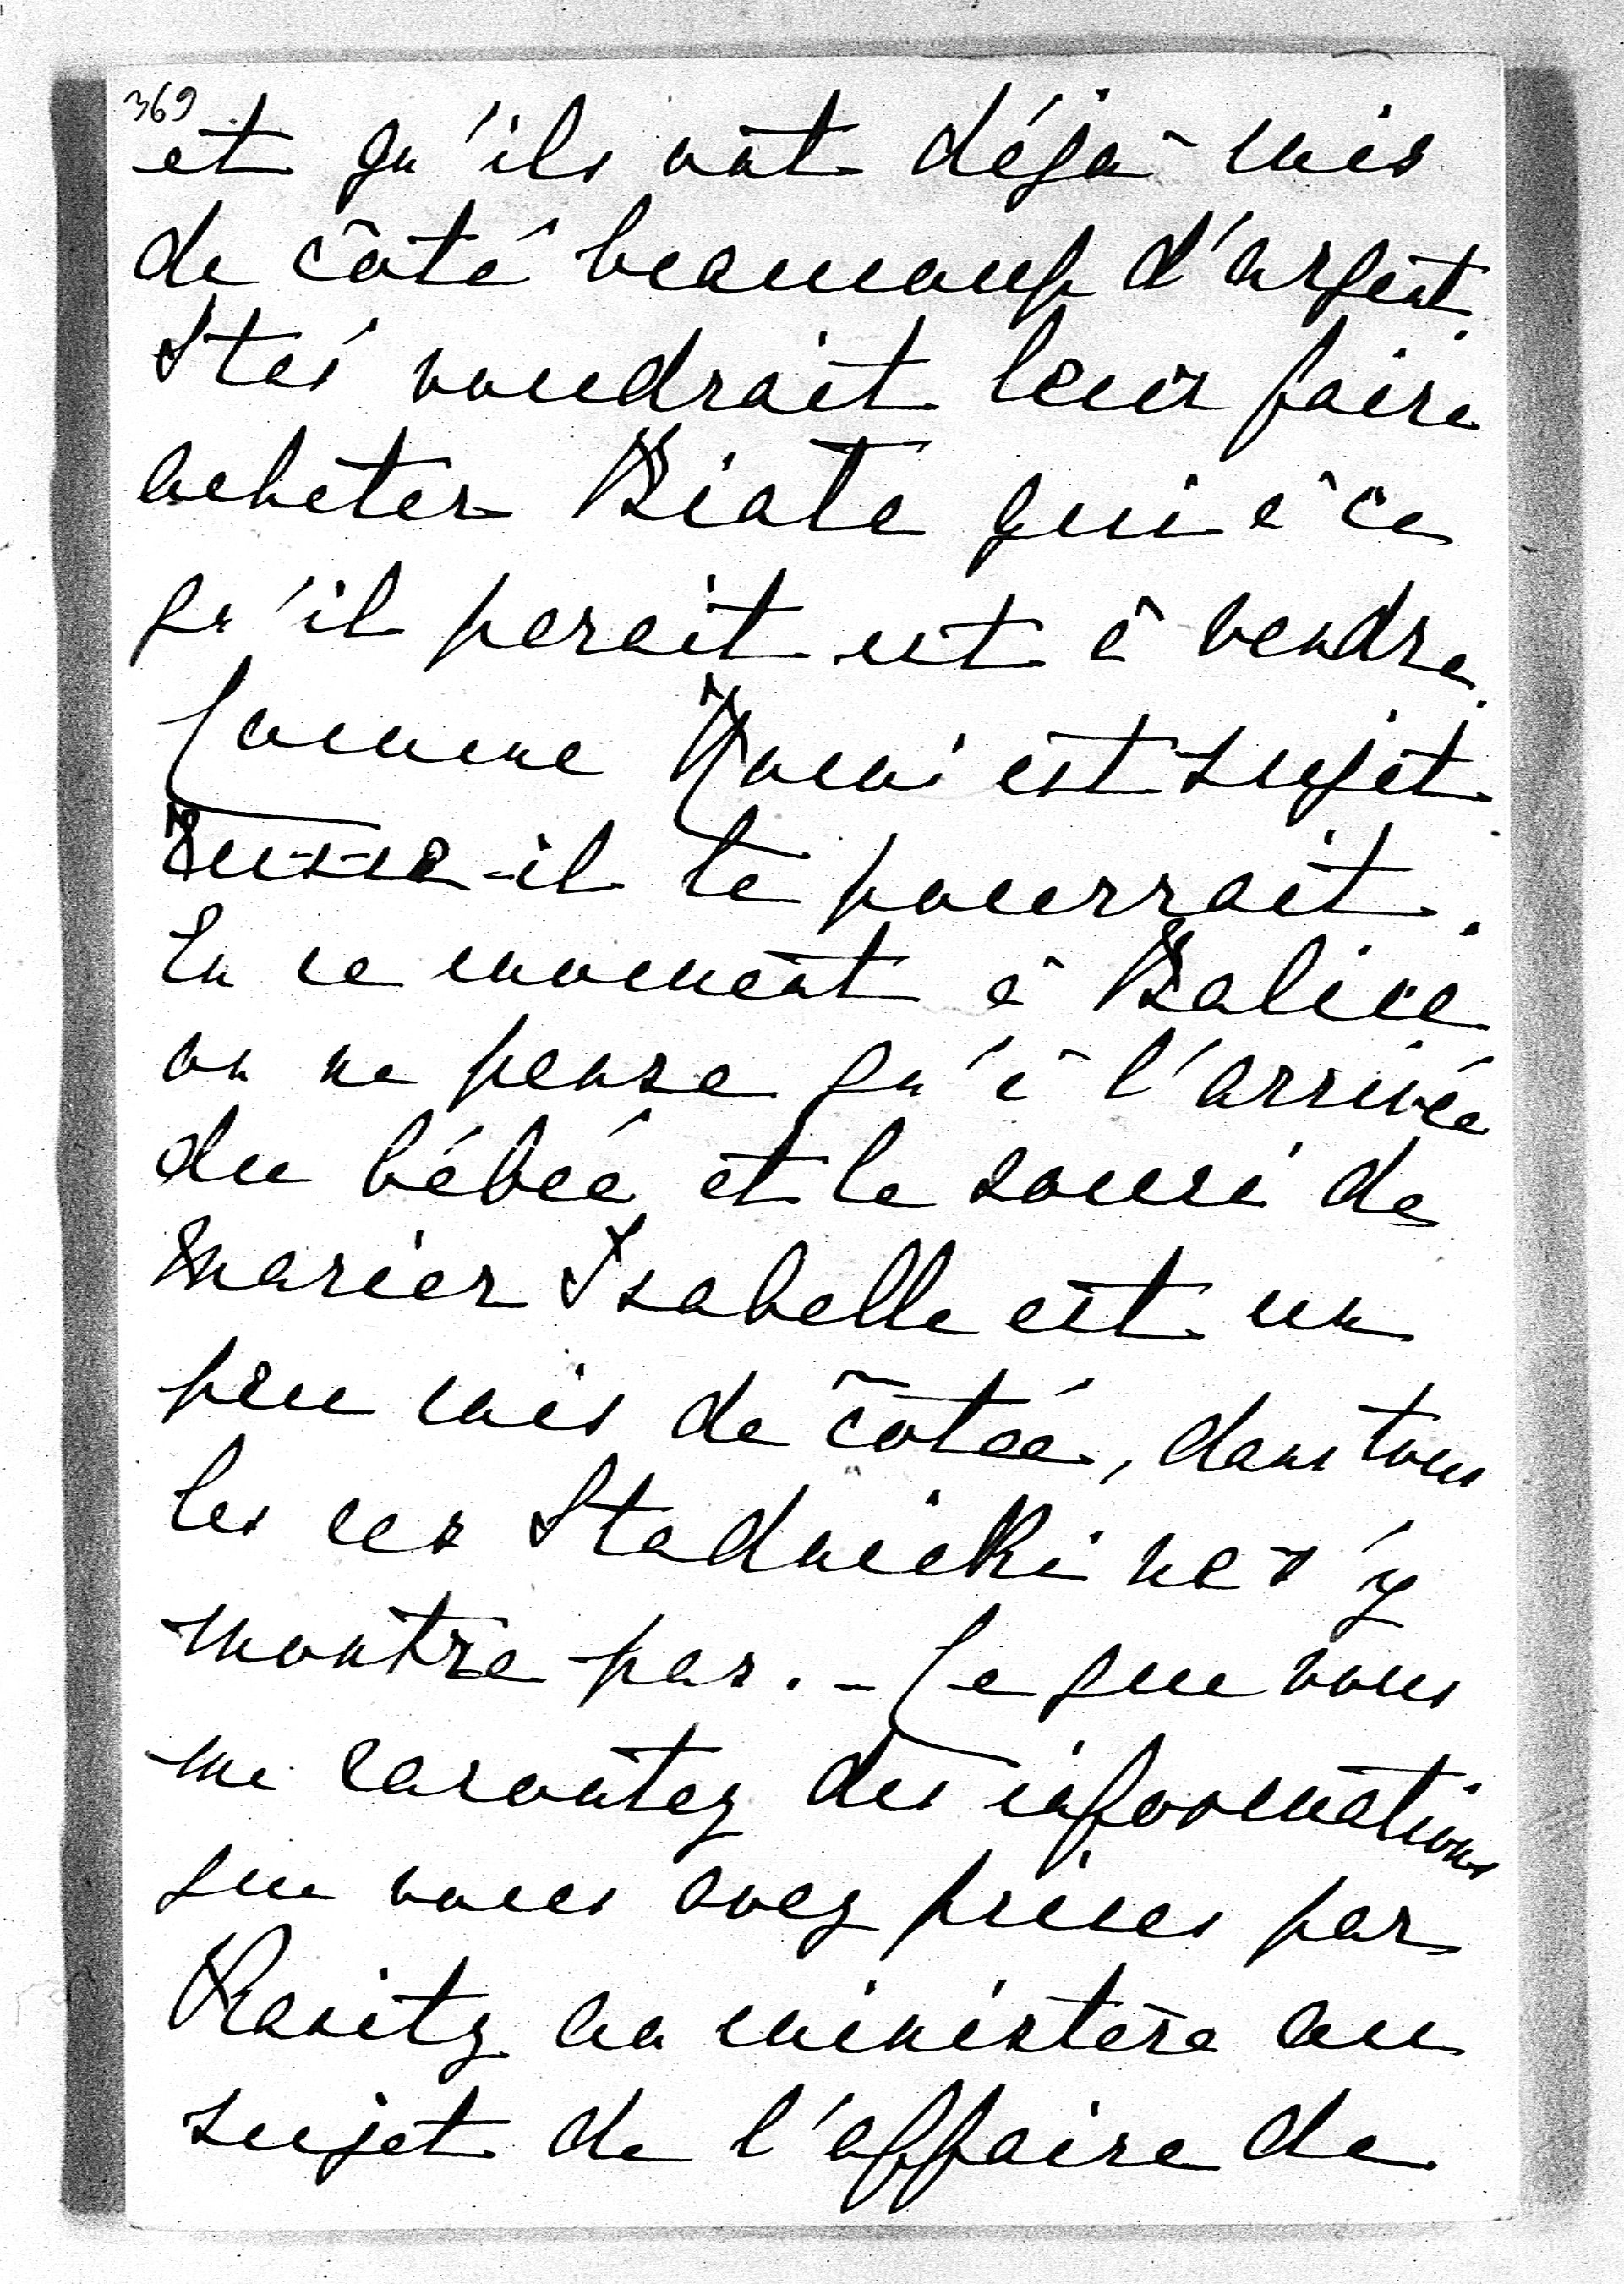 369
et qu'ils ont déjà mis
de côté beaucoup d'argent.
Staś voudrait leur faire
acheter Biała qui à ce
qu'il parait est à vendre.
Comme Mouni est sujet
Russe il le pourrait.
En ce moment à Balice
on ne pense qu'à l'arrivée
du bébée et le souci de
marier Isabelle est un
peu mis de côtée, dans tous
les cas Stadnicki ne s'y
montre pas. - Ce que vous
me racontez des informations
que vous avez prises par
Rasitz au ministère au
sujet de l'affaire de